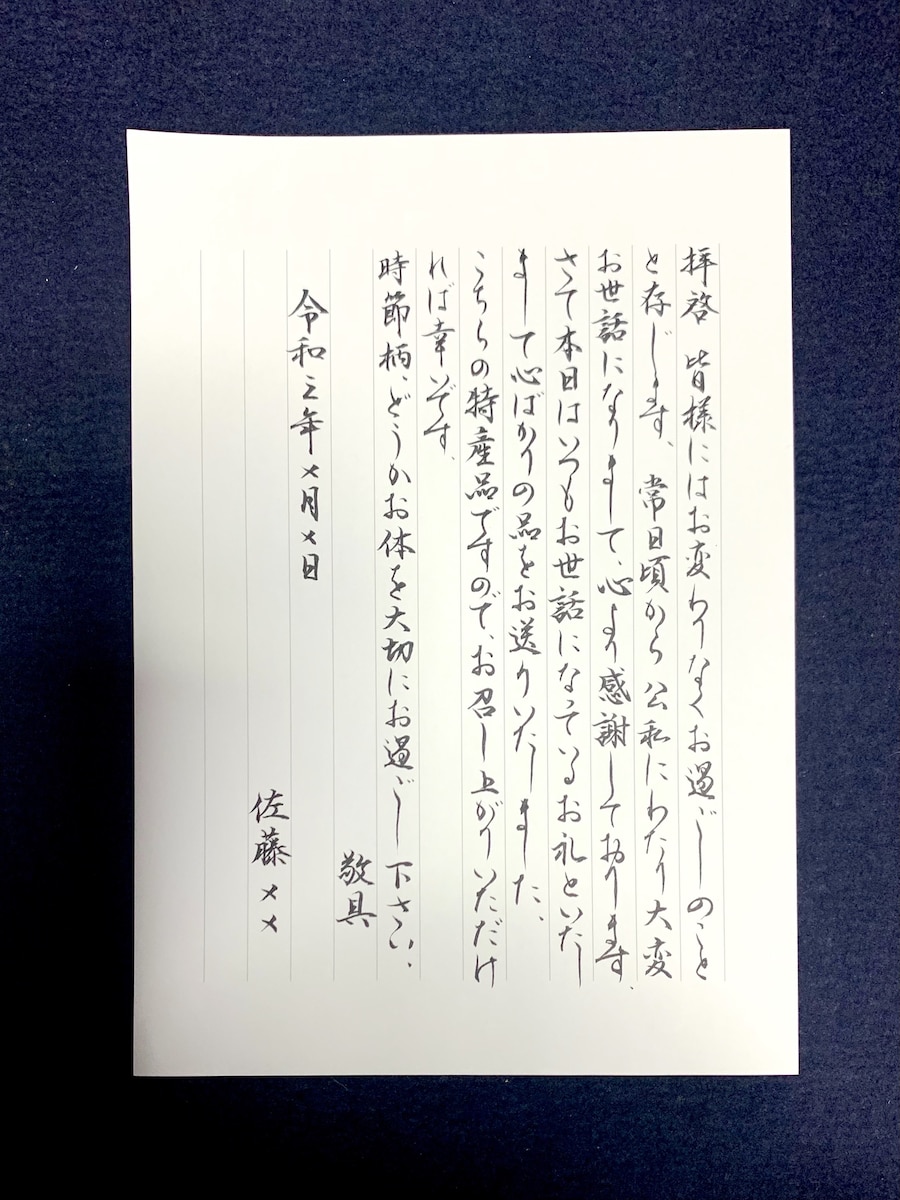 拝啓 皆様にはお変わりなくお過ごしのこと
と存じます。常日頃から公私にわたり大変
お世話になりまして、心より感謝しております。
さて本日はいつもお世話になっているお礼といたし
まして心ばかりの品をお送りいたしました。
こちらの特産品ですので、お召し上がりいただけ
れば幸いです。
時節柄、どうかお体を大切にお過ごし下さい。
敬具
令和三年〆月〆日
佐藤〆〆